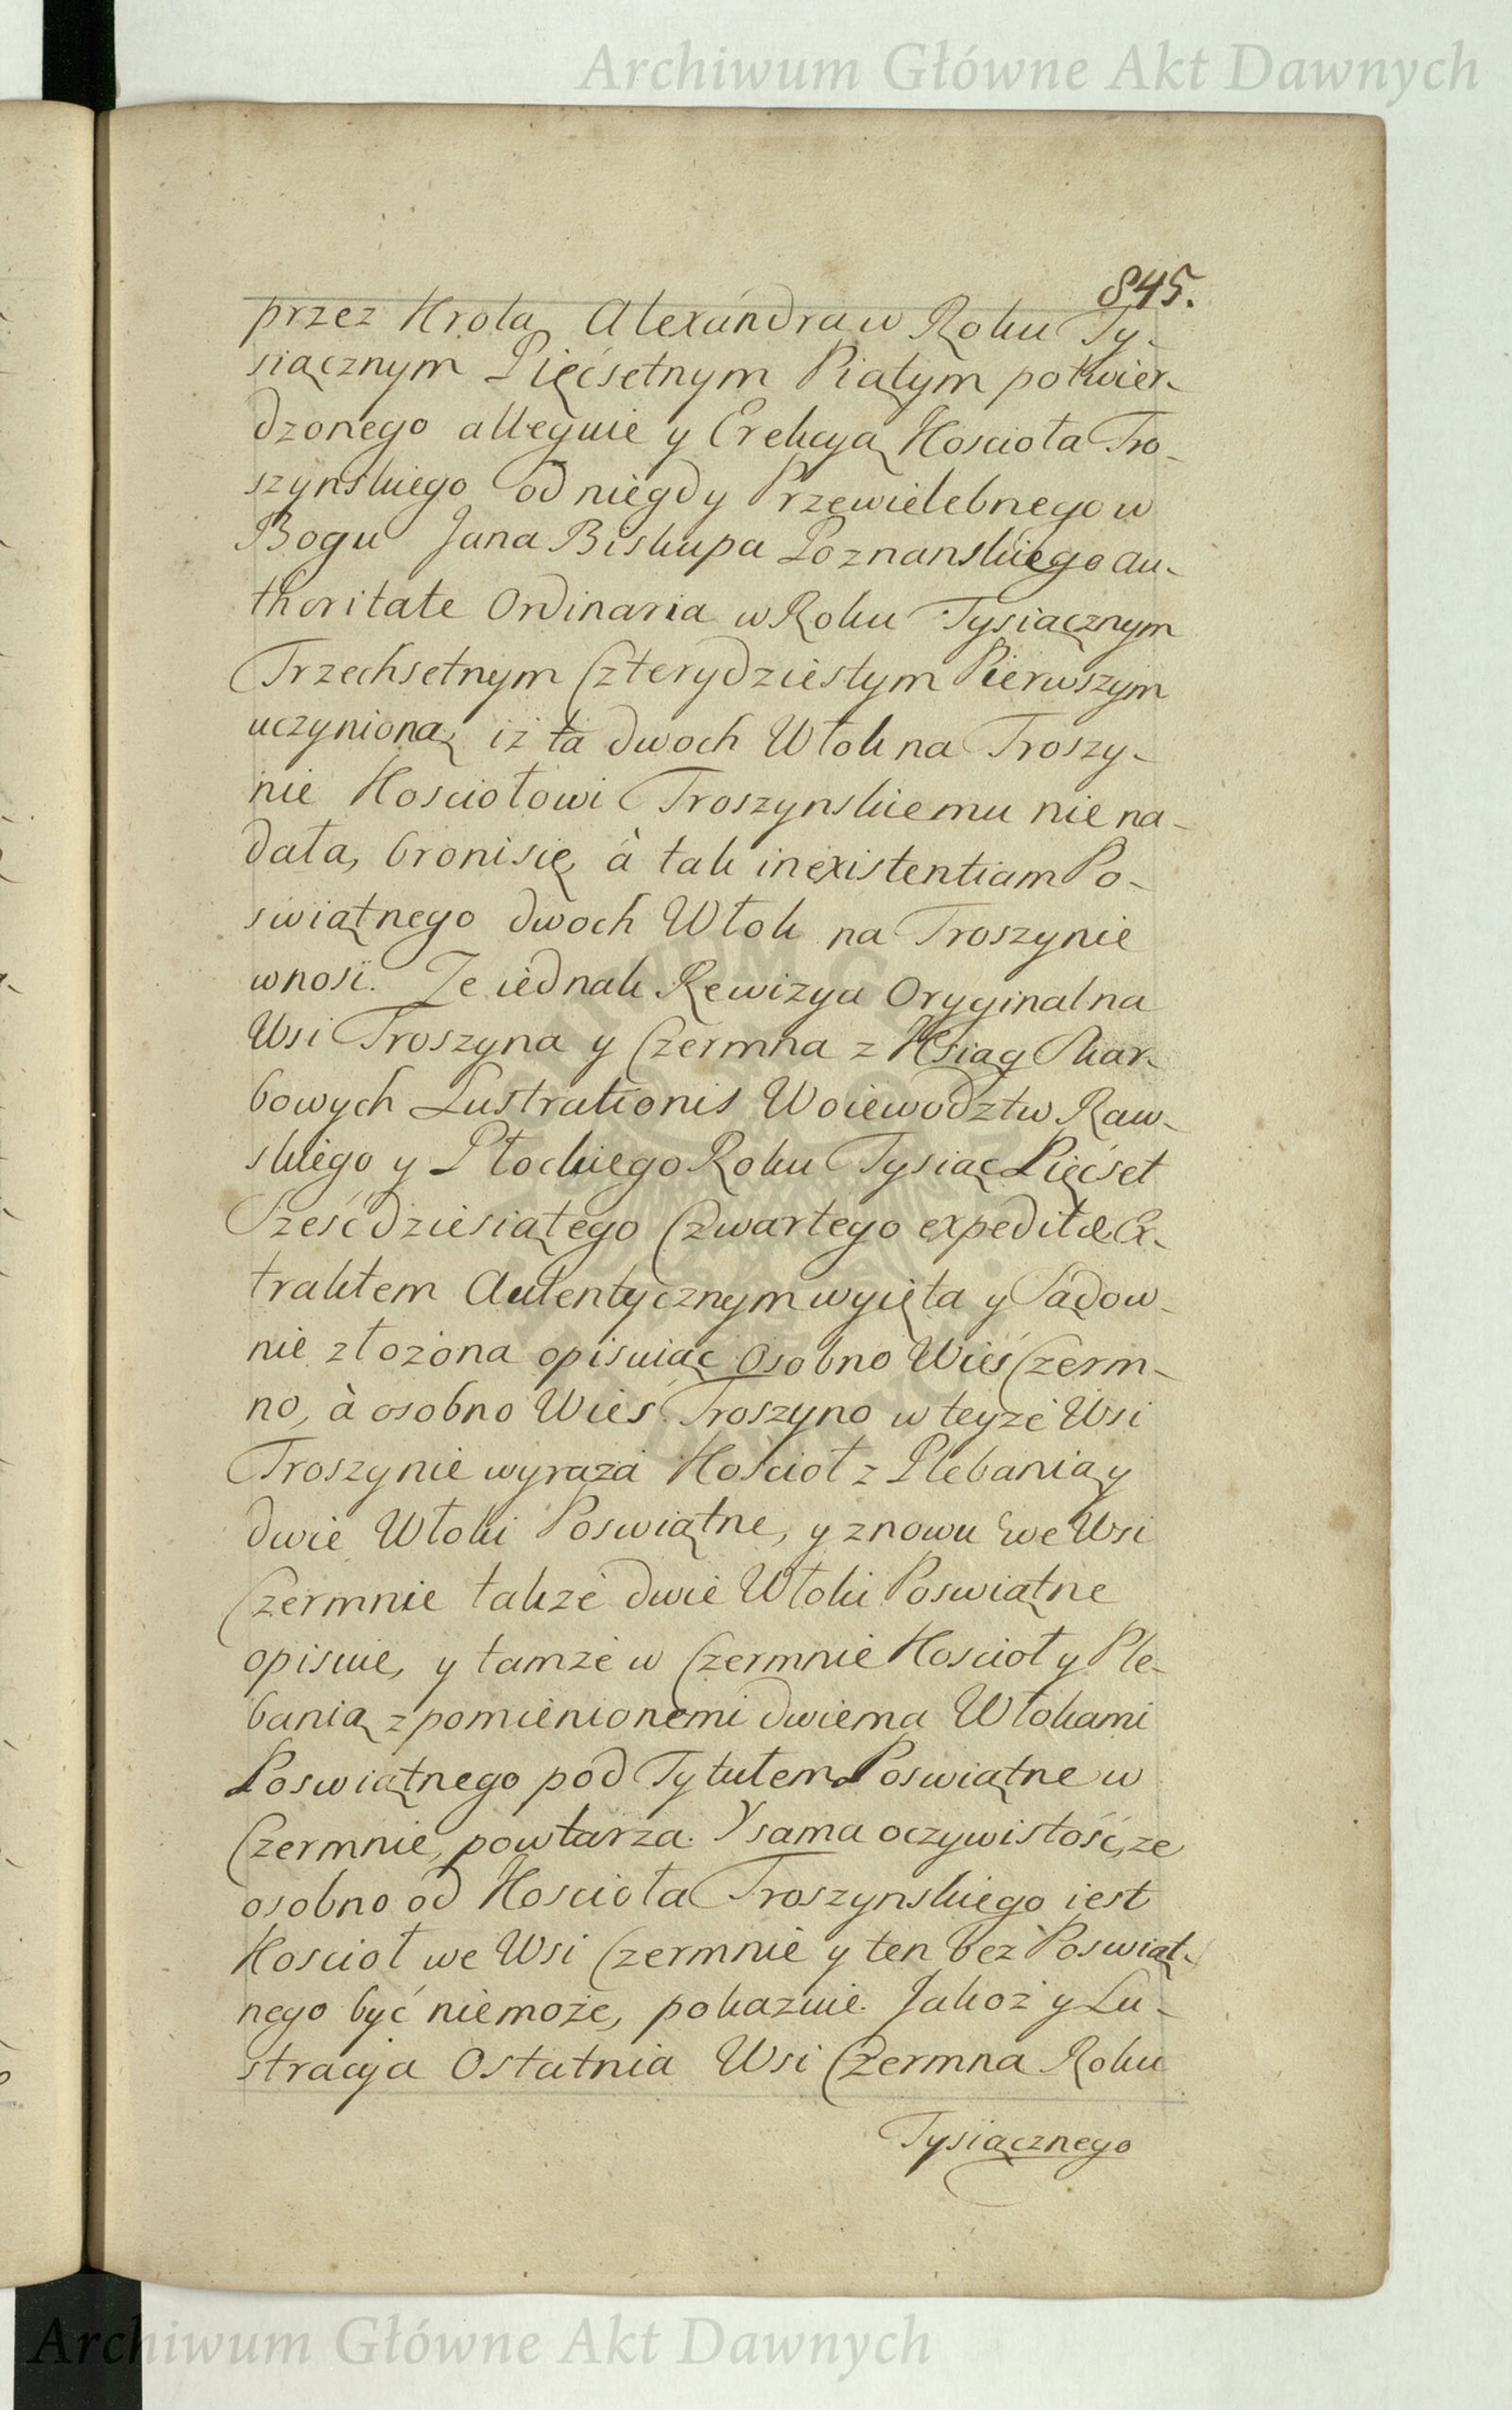 Archiwum Główne Akt Dawnych
845.
przez Krola Alexandra w Roku Ty-
siącznym Pięćsetnym Piątym potwier-
dzonego alleguie y Erekcyą Kosciota Tro-
szynskiego od niegdy Przewielebnego w
Bogu Jana Biskupa Poznanskiego au-
thoritate Ordinaria w Roku Tysiącznym
Trzechsetnym Czterydziestym Pierwszym
uczynioną iż ta dwoch Włok na Troszy-
nie Kosciołowi Troszynskiemu nie na-
dała, broni się, à tak inexistentiam Po-
swiątnego dwoch Włok na Troszynie
wnosi. Ze iednak Rewizya Oryginalna
Wsi Troszyna y Czermna z Ksiąg Skar-
bowych Lustrationis Woiewodztw Raw-
skiego y Płockiego Roku Tysiąc Pięćset
Sześćdziesiątego Czwartego expeditæ Ex-
traktem Autentycznym wyięta y Sądow-
nie złożona opisuiąc osobno Wieś Czerm-
no, à osobno Wieś Troszyno w teyże Wsi
Troszynie wyraża Kościoł z Plebanią y
dwie Włoki Poswiątne, y znowu we Wsi
Czermnie także dwie Włoki Poswiątne
opisuie, y tamże w Czermnie Koscioł y Ple-
banią z pomienionemi dwiema Włokami
Poswiątnego pod Tytułem Poswiątne w
Czermnie, powtarza. Y sama oczywistość, ze
osobno od Kosciola Troszynskiego iest
Koscioł we Wsi Czermnie y ten bez Poswiąt-
nego być niemoże, pokazuie. Jakoż y Lu-
stracya Ostatnia Wsi Czermna Roku
Tysiącznego
Archiwum Główne Akt Dawnych